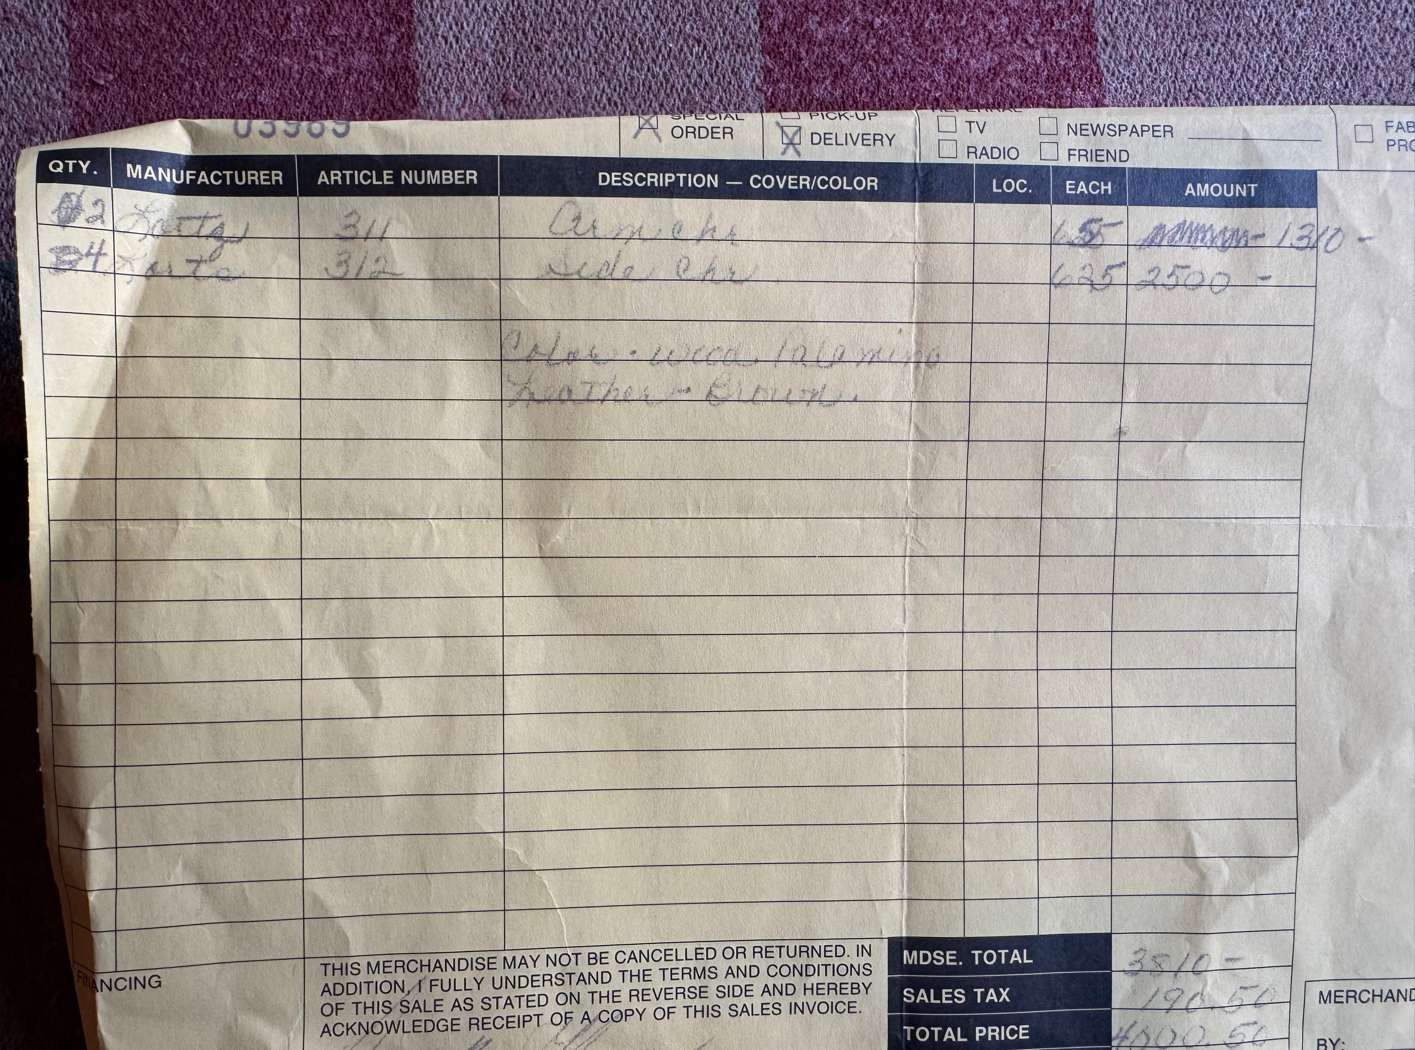 03989
SPECIAL ORDER
PICK-UP
DELIVERY
TV
RADIO
NEWSPAPER
FRIEND
QTY. MANUFACTURER ARTICLE NUMBER DESCRIPTION — COVER/COLOR LOC. EACH AMOUNT
2 311 Arm chr 655 1310 -
4 312 Side Chr 625 2500 -
Color - wood Palamino
Leather - Brown.
FINANCING
THIS MERCHANDISE MAY NOT BE CANCELLED OR RETURNED. IN
ADDITION, I FULLY UNDERSTAND THE TERMS AND CONDITIONS
OF THIS SALE AS STATED ON THE REVERSE SIDE AND HEREBY
ACKNOWLEDGE RECEIPT OF A COPY OF THIS SALES INVOICE.
MDSE. TOTAL 3810 -
SALES TAX 190.50
TOTAL PRICE 4000.50
MERCHAND
BY: